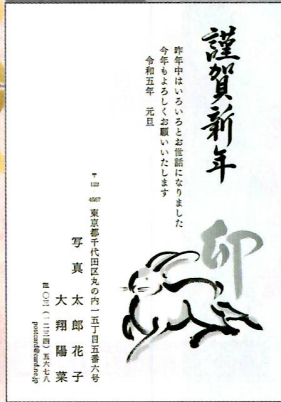 謹賀新年
卯
昨年中はいろいろとお世話になりました
今年もよろしくお願いいたします
令和五年　元旦
〒123-4567 東京都千代田区丸の内一五丁目五番六号
写真　太郎
花子
大翔
陽菜
☎〇三（一二三四）五六七八
postcard@card.ne.jp